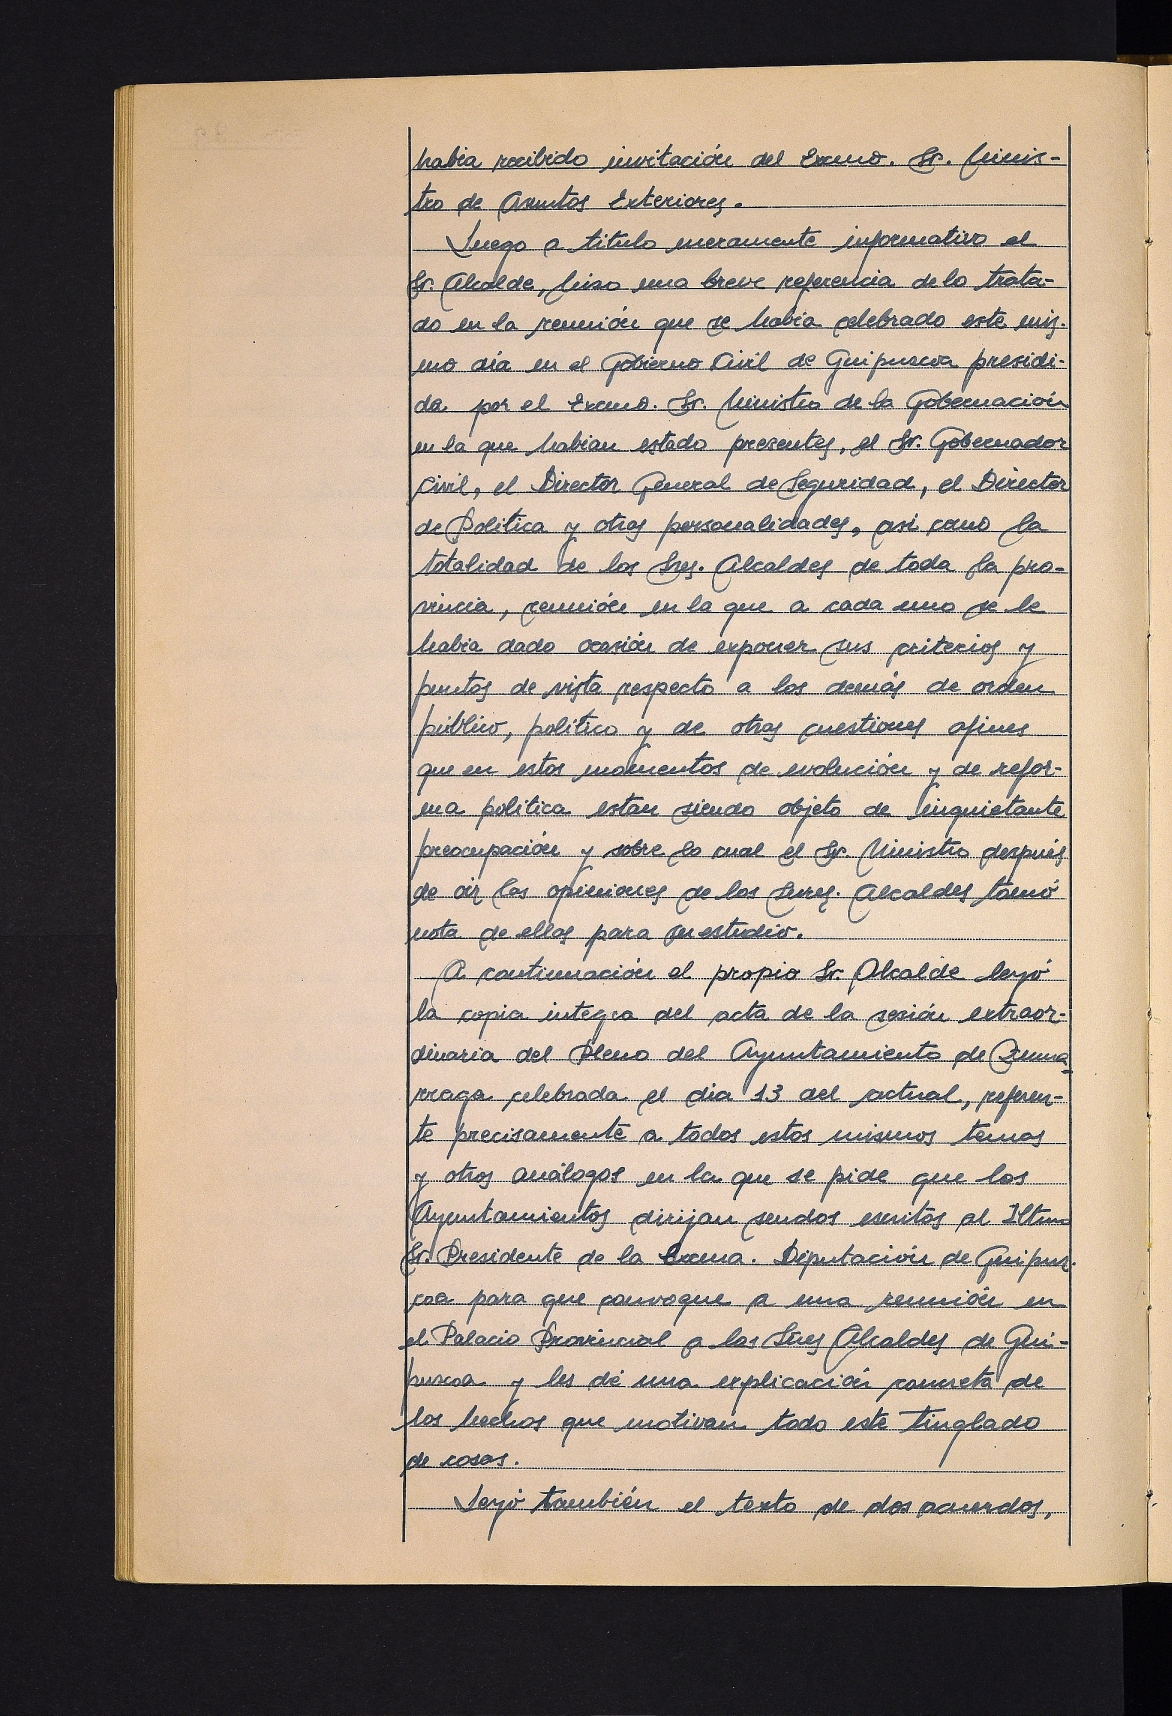 habia recibido invitación del Excmo. Sr. Minis-
tro de Asuntos Exteriores.
Luego a titulo meramente informativo el
Sr. Alcalde, hizo una breve referencia de lo trata-
do en la reunión que se habia celebrado este mis-
mo dia en el Gobierno Civil de Guipuzcoa presidi-
da por el Excmo. Sr. Ministro de la Gobernación
en la que habian estado presentes, el Sr. Gobernador
Civil, el Director General de Seguridad, el Director
de Politica y otras personalidades, asi como la
totalidad de los Sres. Alcaldes de toda la pro-
vincia, reunión en la que a cada uno se le
habia dado ocasión de exponer sus criterios y
puntos de vista respecto a los demás de orden
público, politico y de otras cuestiones afines
que en estos momentos de evolución y de refor-
ma politica estan siendo objeto de inquietante
preocupación y sobre lo cual el Sr. Ministro después
de oir las opiniones de los Sres. Alcaldes tomó
nota de ellas para su estudio.
A continuación el propio Sr. Alcalde leyó
la copia integra del acta de la sesión extraor-
dinaria del Pleno del Ayuntamiento de Zuma-
rraga celebrada el dia 13 del actual, referen-
te precisamente a todos estos mismos temas
y otros análogos en la que se pide que los
Ayuntamientos dirijan sendos escritos al Iltmo
Sr. Presidente de la Excma. Diputación de Guipuz-
coa para que convoque a una reunión en
el Palacio Provincial a los Sres Alcaldes de Gui-
puzcoa y les dé una explicación concreta de
los hechos que motivan todo este tinglado
de cosas.
Leyó también el texto de dos acuerdos,